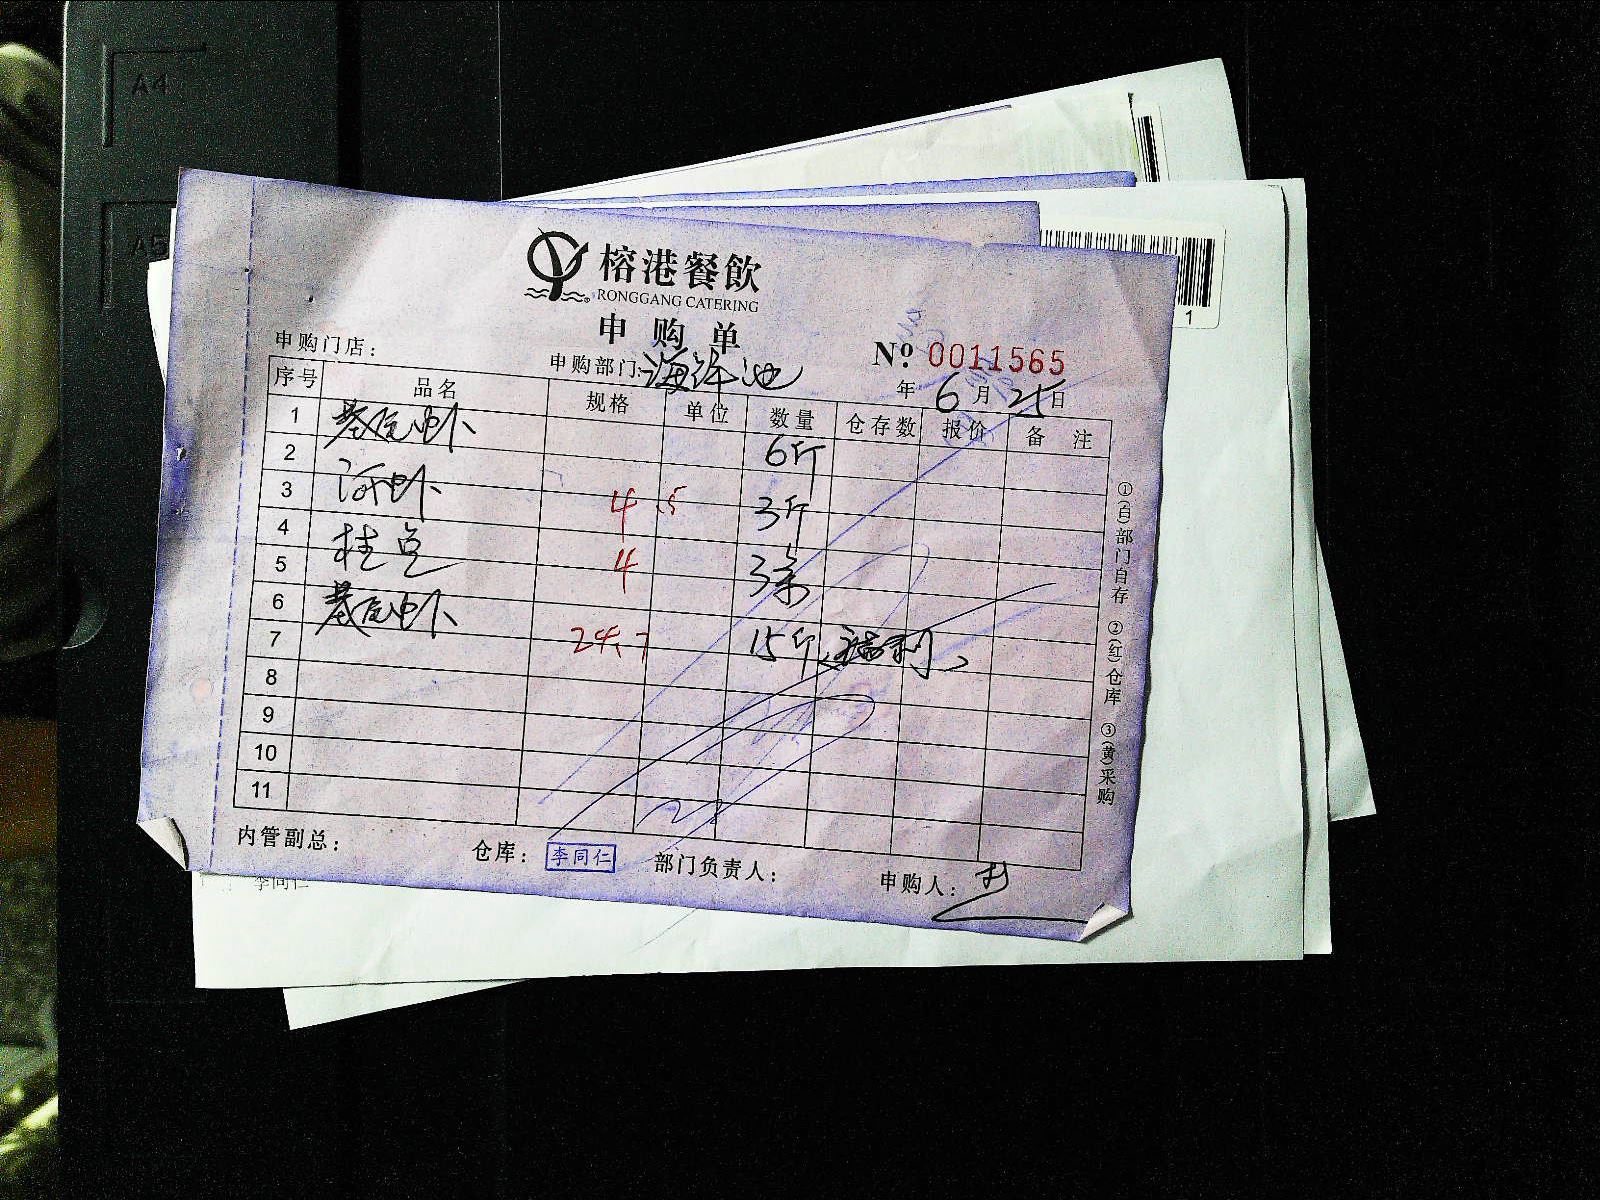 A4
A5
榕港餐飲
RONGGANG CATERING
申购单
№ 0011565
申购门店：
申购部门：海鲜池
年 6 月 25 日
序号 品名 规格 单位 数量 仓存数 报价 备 注
1 基尾虾 6斤
2
3 河虾 4.5 3斤
4
5 桂鱼 4 3条
6 基尾虾
7 24.7 15斤（福利）
8
9
10
11
①(白)部门自存 ②(红)仓库 ③(黄)采购
内管副总： 仓库：李同仁 部门负责人： 申购人：
李同仁
1